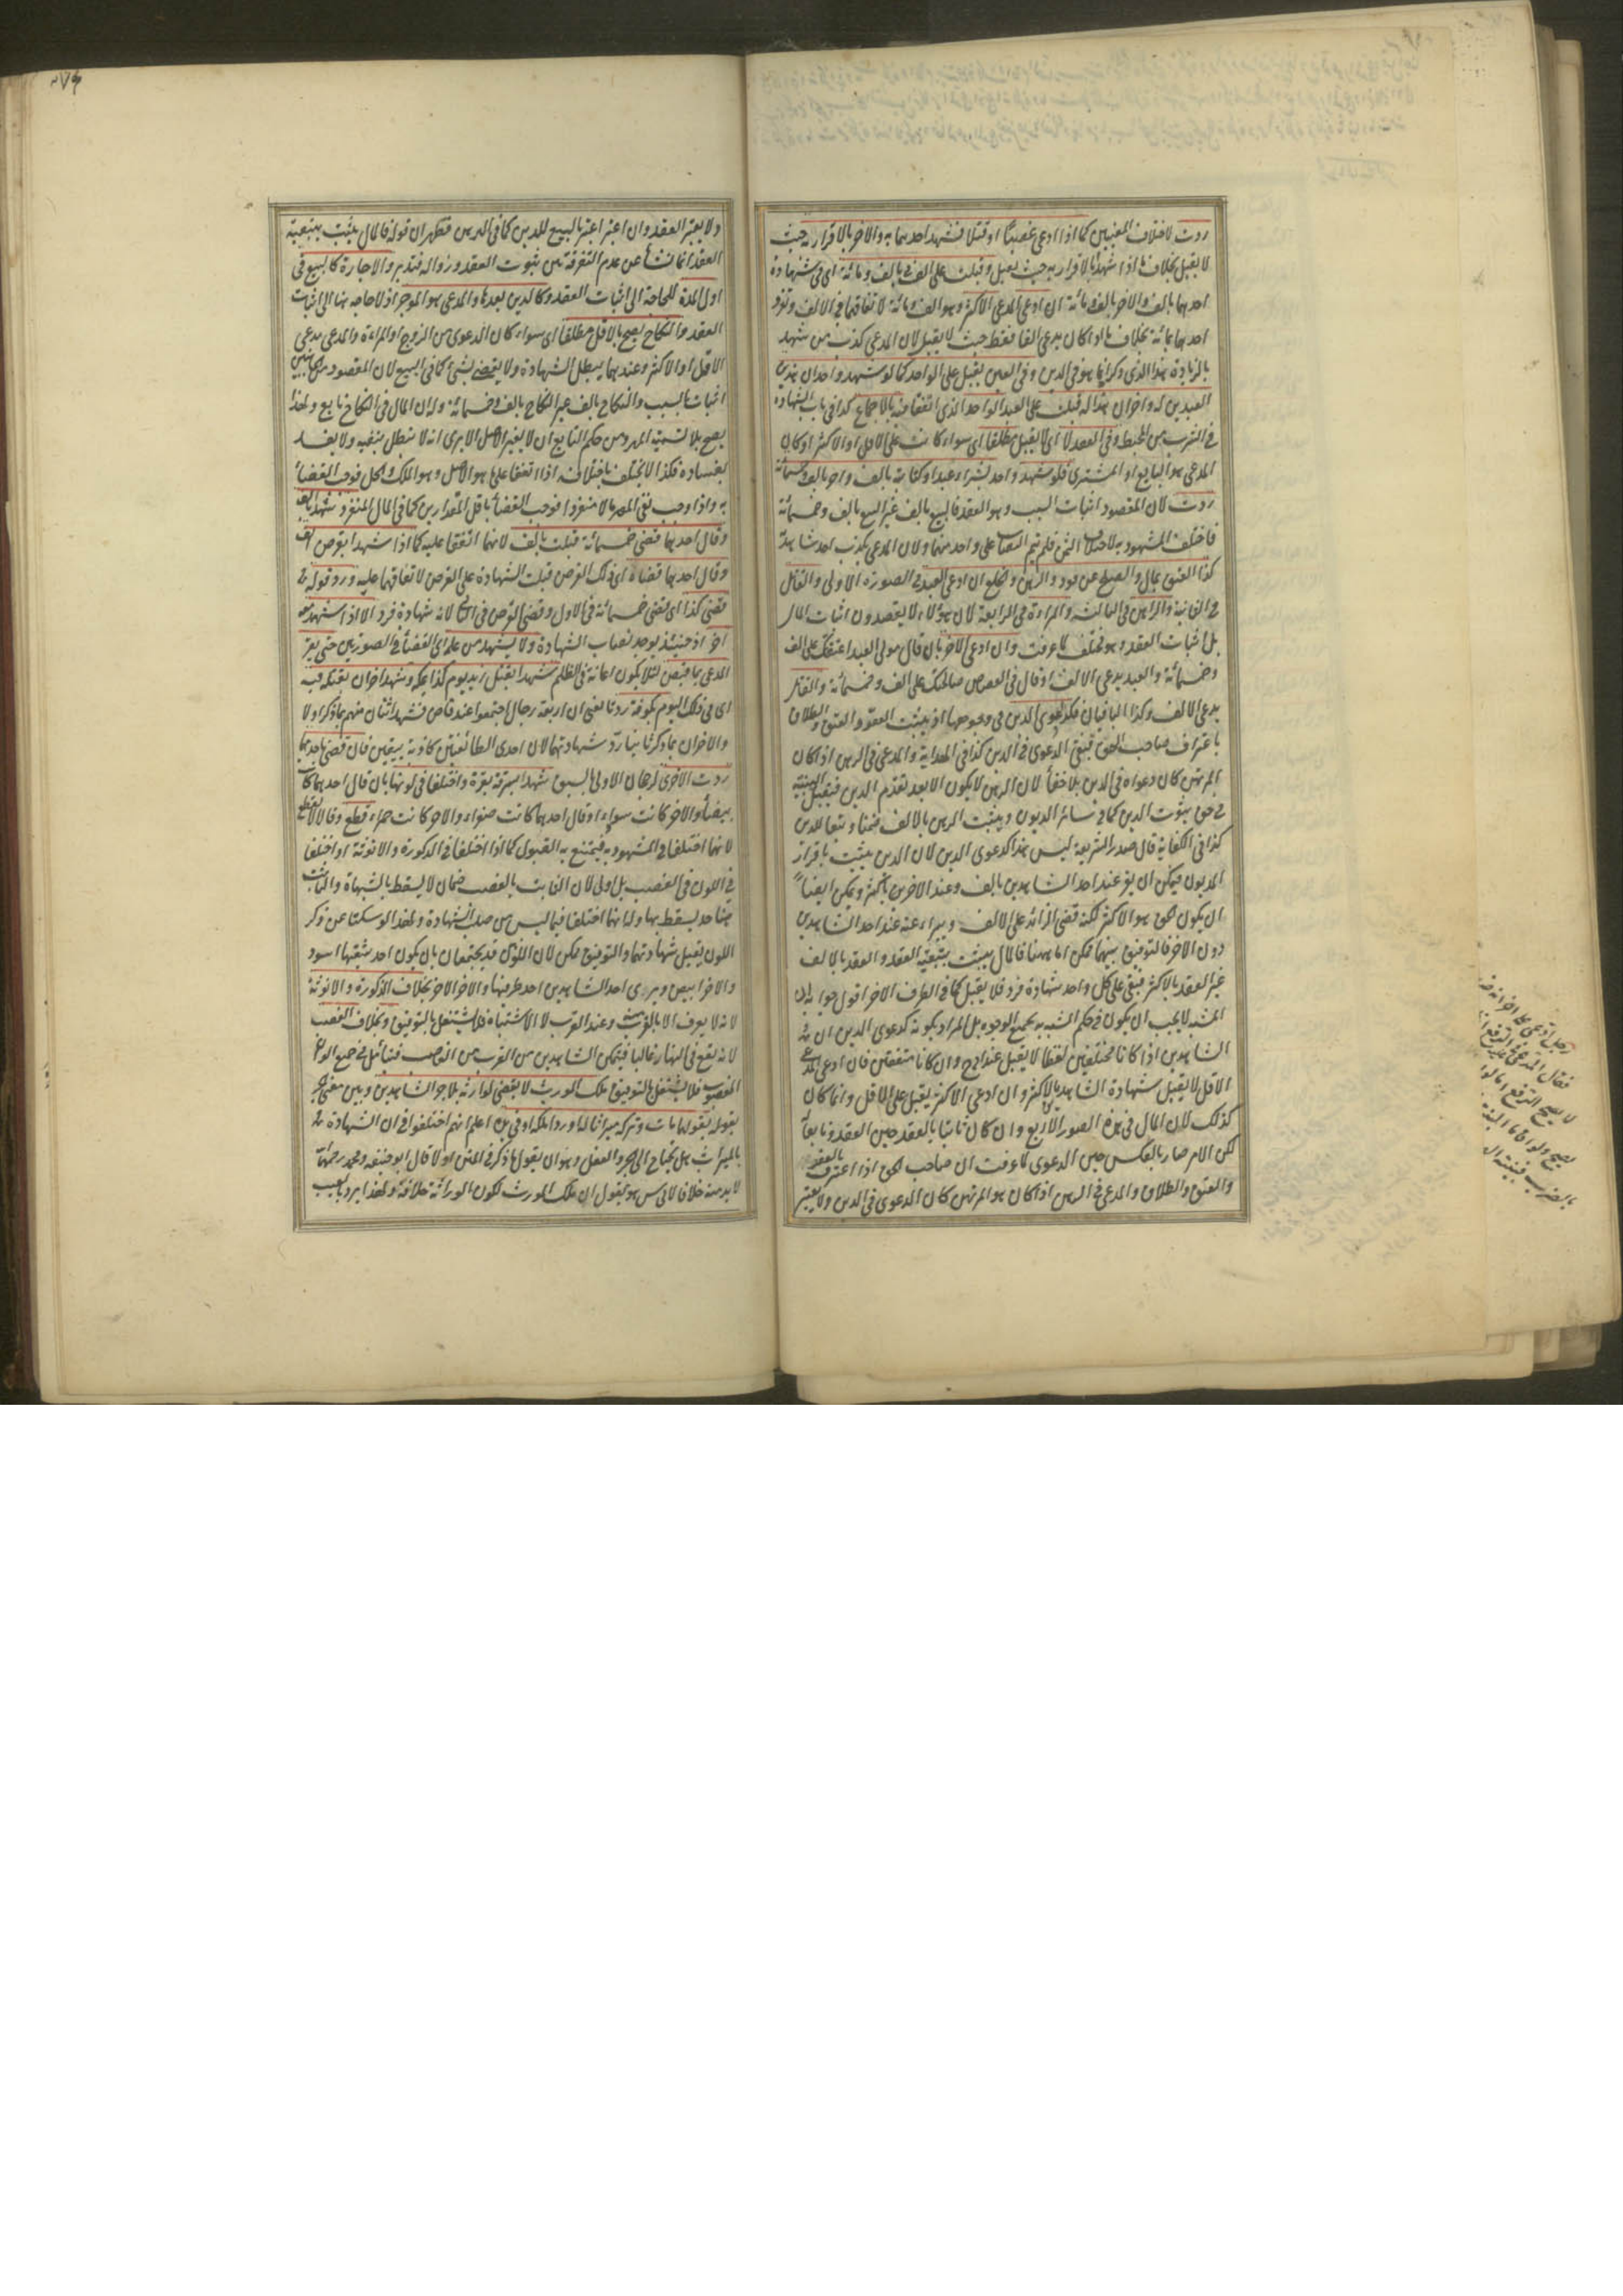 ردت لاختلاف المعنيين كما اذا ادعى غصبا او قتلا فشهد احدهما به والاخر بالاقرار به حيث
لا يقبل بخلاف ما اذا شهدا بالاقرار به حيث يقبل وقبلت على الف في بالف ومائة اى فى شهادة
احدهما بالف والاخر بالف ومائة ان ادعى المدعى الاكثر وهو الف ومائة لاتفاقهما فى الالف وتفرد
احدهما بمائة بخلاف ما اذا كان يدعى الفا فقط حيث لا يقبل لان المدعى كذب من شهد
بالزيادة هذا الذى ذكر انما هو فى الدين وفى العين يقبل على الواحد كما لو شهد واحد ان هذين
العبدين له واخر ان هذا له قبلت على العبد الواحد الذى اتفقا فيه بالاجماع كذا فى باب الشهادة
فى الشرب من المحيط وفى العقد لا اى لا يقبل مطلقا اى سواء كانت على الاقل او الاكثر او كان
المدعى هو البايع او المشترى فلو شهد واحد بشراء عبد او كتابته بالف واخر بالف وخمسمائة
ردت لان المقصود اثبات السبب وهو العقد فالبيع بالف غير البيع بالف وخمسمائة
فاختلف المشهود به لاختلاف الثمن فلم يتم النصاب على واحد منهما ولان المدعى يكذب احد شاهديه
كذا العتق بمال والصلح عن قود والرهن والخلع ان ادعى العبد فى الصورة الاولى والقاتل
فى الثانية والراهن فى الثالثة والمرأة فى الرابعة لان هؤلاء لا يقصدون اثبات المال
بل اثبات العقد وهو مختلف كما عرفت وان ادعى الاخر بان قال مولى العبد اعتقتك على الف
وخمسمائة والعبد يدعى الالف او قال ولى القصاص صالحتك على الف وخمسمائة والقاتل
يدعى الالف وكذا الباقيان فكدعوى الدين فى وجوهها اذ يثبت العفو والعتق والطلاق
باعتراف صاحب الحق فتبقى الدعوى فى الدين كذا فى الهداية والمدعى فى الرهن اذا كان
المرتهن كان دعواه فى الدين بلا خفاء لان الرهن لا يكون الا بعد تقدم الدين فيقبل البينة
فى حق ثبوت الدين كما فى سائر الديون ويثبت الرهن بالالف ضمنا وتبعا للدين
كذا فى الكفاية قال صدر الشريعة ليس هذا كدعوى الدين لان الدين يثبت باقرار
المديون فيمكن ان يقر عند احد الشاهدين بالف وعند الاخر باكثر ويمكن ايضا
ان يكون الحق هو الاكثر لكنه قضى الزائد على الالف وببراء عنه عند احد الشاهدين
دون الاخر فالتوفيق بينهما ممكن اما ههنا فالمال يثبت بتبعية العقد والعقد بالالف
غير العقد بالاكثر فبقى على كل واحد شهادة فرد فلا يقبل كما فى الطرف الاخر اقول جوابه ان
المشبه لا يجب ان يكون فى حكم المشبه به بجميع الوجوه بل المراد بكونه كدعوى الدين ان
الشاهدين اذا كانا مختلفين لفظا لا يقبل عند ابى ح وان كانا متفقين فان ادعى المدعى
الاقل لا يقبل شهادة الشاهد بالاكثر وان ادعى الاكثر يقبل على الاقل وانما كان
كذلك لان المال فى هذه الصور الاربع وان كان ثابتا بالعقد حين العقد وتابعا
لكن الامر صار بالعكس حين الدعوى لما عرفت ان صاحب الحق اذا اعترف بالعفو
والعتق والطلاق والمدعى فى الرهن اذا كان هو المرتهن كان الدعوى فى الدين ولا يعتبر
ولا يعتبر العقد وان اعتبر اعتبر بالتبع للدين كما فى الرهن فظهر ان قوله فالمال يثبت بتبعية
العقد انما نشأ عن عدم التفرقة بين ثبوت العقد وزواله فتدبر والاجارة كالبيع فى
اول المدة للحاجة الى اثبات العقد وكالدين بعدها والمدعى هو الموجر اذ لا حاجة هنا الى اثبات
العقد والنكاح يصح بالاقل مطلقا اى سواء كان الدعوى من الزوج او المرأة والمدعى يدعى
الاقل او الاكثر وعندهما يبطل الشهادة ولا يقضى بشئ كما فى البيع لان المقصود من الجانبين
اثبات السبب والنكاح بالف غير النكاح بالف وخمسمائة وله ان المال فى النكاح تابع ولهذا
يصح بلا تسمية المهر ومن حكم التابع ان لا يغير الاصل الا يرى انه لا يبطل بنفيه ولا يفسد
بفساده فكذا لا يختلف باختلافه اذا اتفقا على ما هو الاصل وهو الملك والحل فوجب القضاء
به واذا وجب بقى المهر مالا منفردا فوجب القضاء باقل المقدارين كما فى المال المنفرد شهدا بالف
وقال احدهما قضى خمسمائة قبلت بالف لانهما اتفقا عليه كما اذا شهدا بقرض الف
وقال احدهما قضاه اى ذلك القرض قبلت الشهادة على القرض لاتفاقهما عليه ورد قوله
قضى كذا اى قضى خمسمائة فى الاول وقضى القرض فى الثانى لانه شهادة فرد الا اذا شهد معه
اخر اذ حينئذ يوجد نصاب الشهادة ولا يشهد من علم اى القضاء فى الصورتين حتى يقر
المدعى بما قبض لئلا يكون اعانة فى الظلم شهدا بقتل زيد يوم كذا بمكة وشهد اخران بقتله فيه
اى فى ذلك اليوم بكوفة ردتا لعنى ان اربعة رجال اجتمعوا عند قاض فشهد اثنان منهم بما ذكر اولا
والاخران بما ذكر ثانيا ردت شهادتهما لان احدى الطائفتين كاذبة بيقين فان قضى باحدهما
ردت الاخرى لرجحان الاولى بالسبق شهدا بسرقة بقرة واختلفا فى لونها بان قال احدهما كانت
بيضاء والاخر كانت سوداء او قال احدهما كانت صفراء والاخر كانت حمراء قطع وقالا لا يقطع
لانهما اختلفا فى المشهود به فيمتنع به القبول كما اذا اختلفا فى الذكورة والانوثة او اختلفا
فى اللون فى الغصب بل اولى لان الثابت بالغصب ضمان لا يسقط بالشبهاة والثابت
هنا حد يسقط بها وله انهما اختلفا فيما ليس من صلب الشهادة ولهذا لو سكتا عن ذكر
اللون يقبل شهادتهما والتوفيق ممكن لان اللونين قد يجتمعان بان يكون احد شقيها اسود
والاخر ابيض ويرى احد الشاهدين احد طرفيها والاخر الاخر بخلاف الذكورة والانوثة
لانه لا يعرف الا بالقرب منه وعند القرب لا الاشتباه فلا يشتغل بالتوفيق وبخلاف الغصب
لانه يقع فى النهار غالبا فيتمكن الشاهدين من القرب من الغاصب فيتأمل فى جميع الوان
المغصوب فلا يشتغل بالتوفيق ملك المورث لا يقضى لوارثه بلا جر الشاهدين وبين معنى الجر
بقوله بقولهما مات وتركه ميراثا له او وذا ملكه او فى يده اعلم انهم اختلفوا فى ان الشهادة
بالميراث هل يحتاج الى الجر والنقل وهو ان يقول ما ذكر فى المتن او لا قال ابو حنيفة ومحمد رحمهما الله
لا بد منه خلافا لابى يوسف هو يقول ان ملك المورث لكون الوراثة خلافة ولهذا يرد بالعيب
رجل ادعى على اخر انه
فقال المدعى
لا يصح الدفع
يصح ولو اقاما البينة